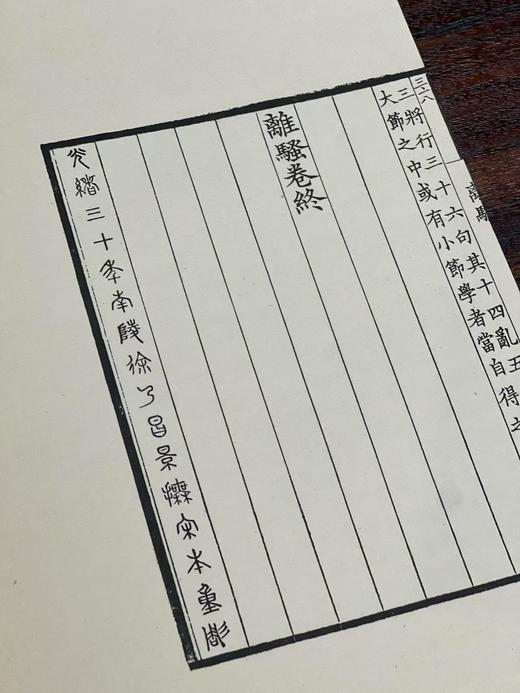 三將行三十六句其十四亂五
大節之中或有小節學者當自得
離騷卷終
光緒三十年南陵徐乃昌景橅宋本重彫